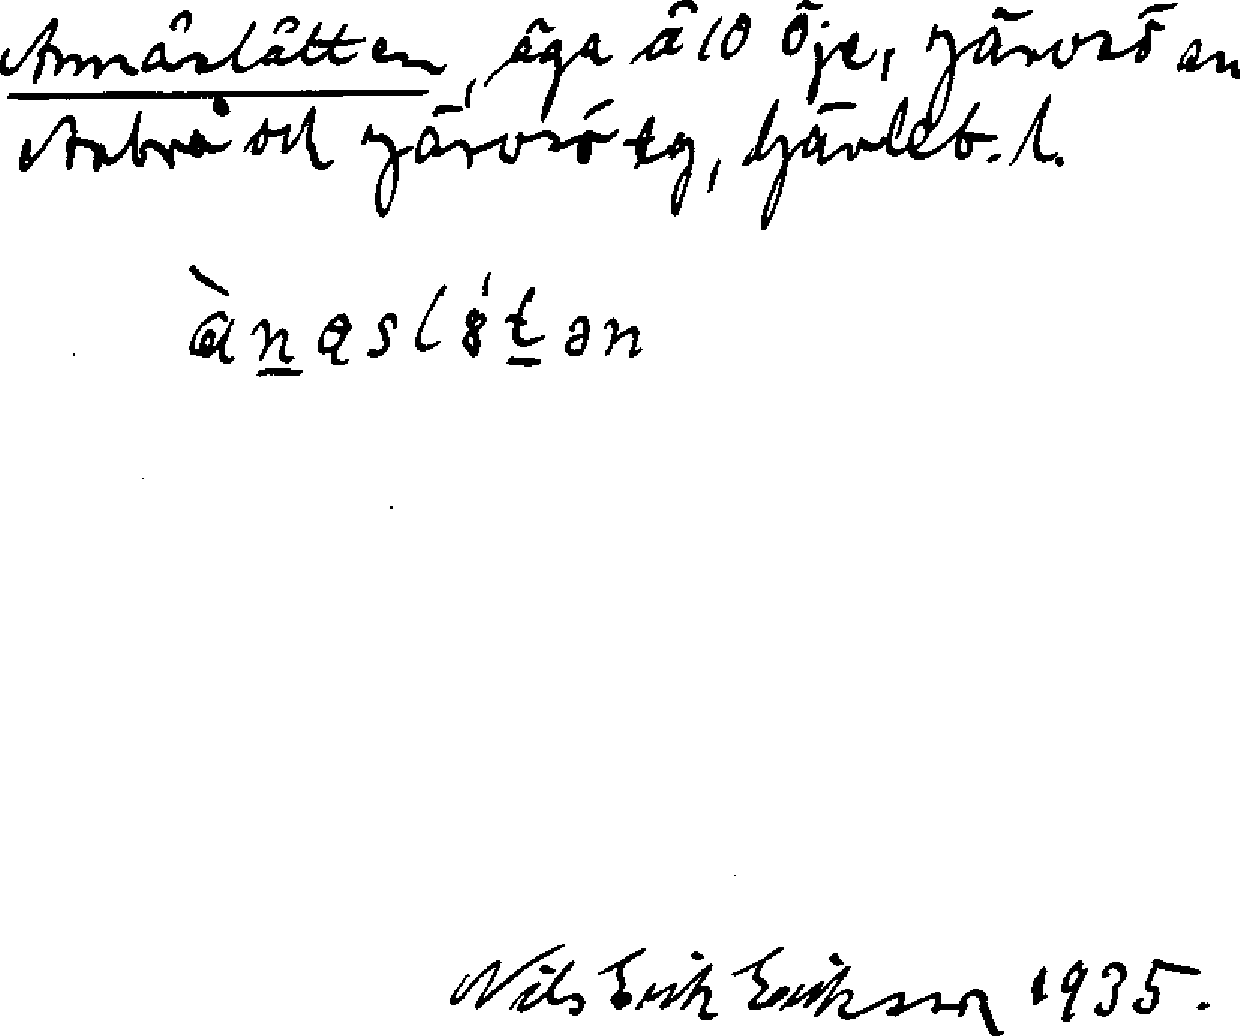 Annåslåtten, äga å 10 Öje, Järvsö sn
Arbrå och Järvsö tg, Gävleb. l.
Nils Erik Eriksson 1935.